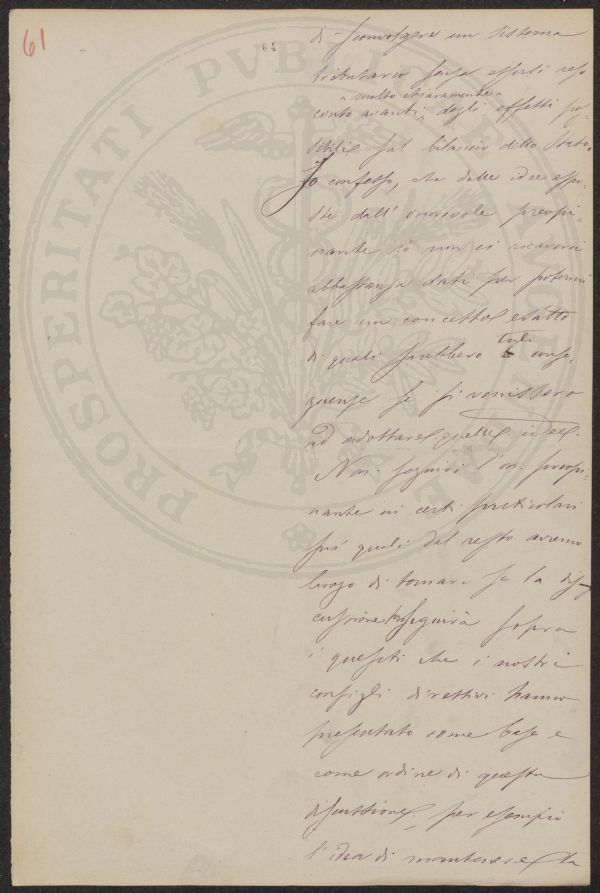 61
64
PROSPERITATI PVBLICAE AVGENDAE
di sconvolgere un sistema
tributario senza essersi reso
^ molto chiaramente ^
conto avanti, degli effetti pos-
sibili sul bilancio dello Stato.
Io confesso, che dalle idee espo-
ste dall'onorevole preopi-
nante io non ci ricaverei
abbastanza dati per potermi
fare un concetto esatto
di quali sarebbero tali conse-
guenze se si venissero
ad adottare quelle idee.
Non seguirò l'on. preopi-
nante in certi particolari
sui quali del resto avremo
luogo di tornare se la dis-
cussione proseguirà sopra
i quesiti che i nostri
consigli direttivi hanno
presentato come base e
come ordine di questa
discussione; per esempio
l'idea di mantenere la